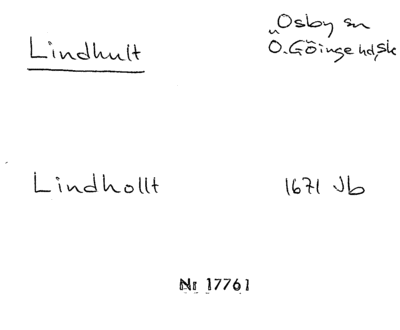 Lindhult
Osby sn
Ö. Göinge hd, Sk
Lindhollt
1671 Jb
Nr 17761